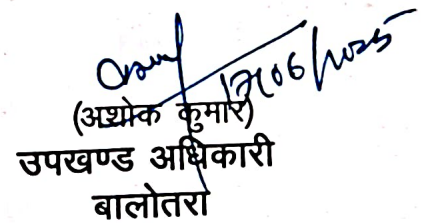 17/06/2025
(अशोक कुमार)
उपखण्ड अधिकारी
बालोतरा